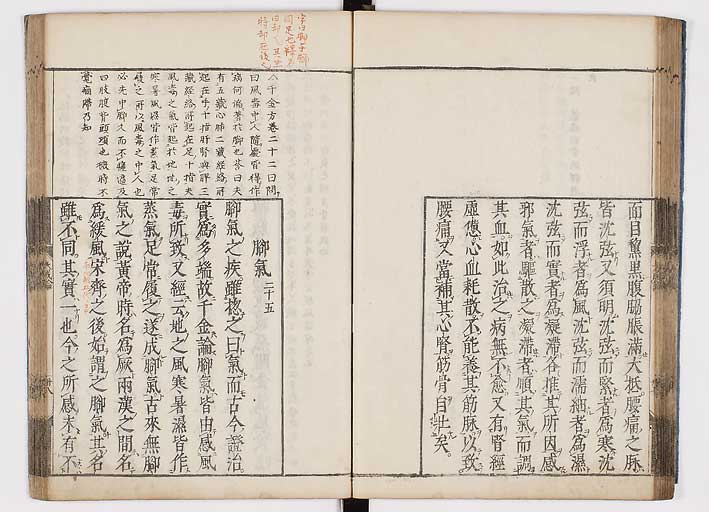 面目黧黒腹脇脹滿大抵腰痛之脉
皆沈弦又須明沈弦而緊者爲寒沈
弦而浮者爲風沈弦而濡細者爲濕
沈弦而實者爲凝滯各推其所因感
邪氣者驅散之凝滯者順其氣而調
其血如此治之病無不愈又有腎經
虛憊心血耗散不能養其筋脉以致
腰痛又當補其心腎筋骨自壯矣
脚氣 二十五
脚氣之疾雖揔之曰氣而古今證治
實爲多端故千金論脚氣皆由感風
毒所致又經云地之風寒暑濕皆作
蒸氣足常履之遂成脚氣古來無脚
氣之說黃帝時名爲厥兩漢之間名
爲緩風宋齊之後始謂之脚氣其名
雖不同其實一也今之所感未有不
千金方卷二十二曰問
曰風毒中人隨處皆得作
病何偏著於脚也荅曰夫
有五藏心肺二藏經絡所
起在手十指肝腎與脾三
藏經絡所起在足十指夫
風毒之氣皆起於地地之
寒暑風濕皆作蒸氣足常
履之所以風毒之中人也
必先中脚久而不瘥遍及
四肢腹背頭項也微時不
覺痼滯乃知